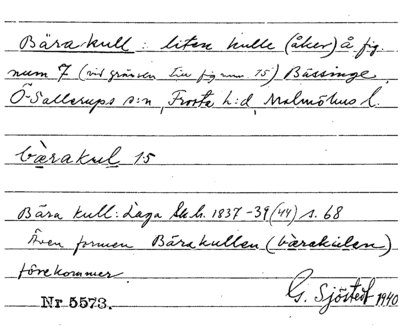 Bära kull : liten kulle (åker) å fig.
num 7 (vid gränsen till fig num. 15) Bässinge,
Ö-Sallerups s:n, Frosta h:d, Malmöhus l.
bàrakul 15
Bära kull: Laga Sk.h. 1837-39 (44) s. 68
Även formen Bärakullen (bàrakulen)
förekommer
Nr 5573. G. Sjöstedt 1940